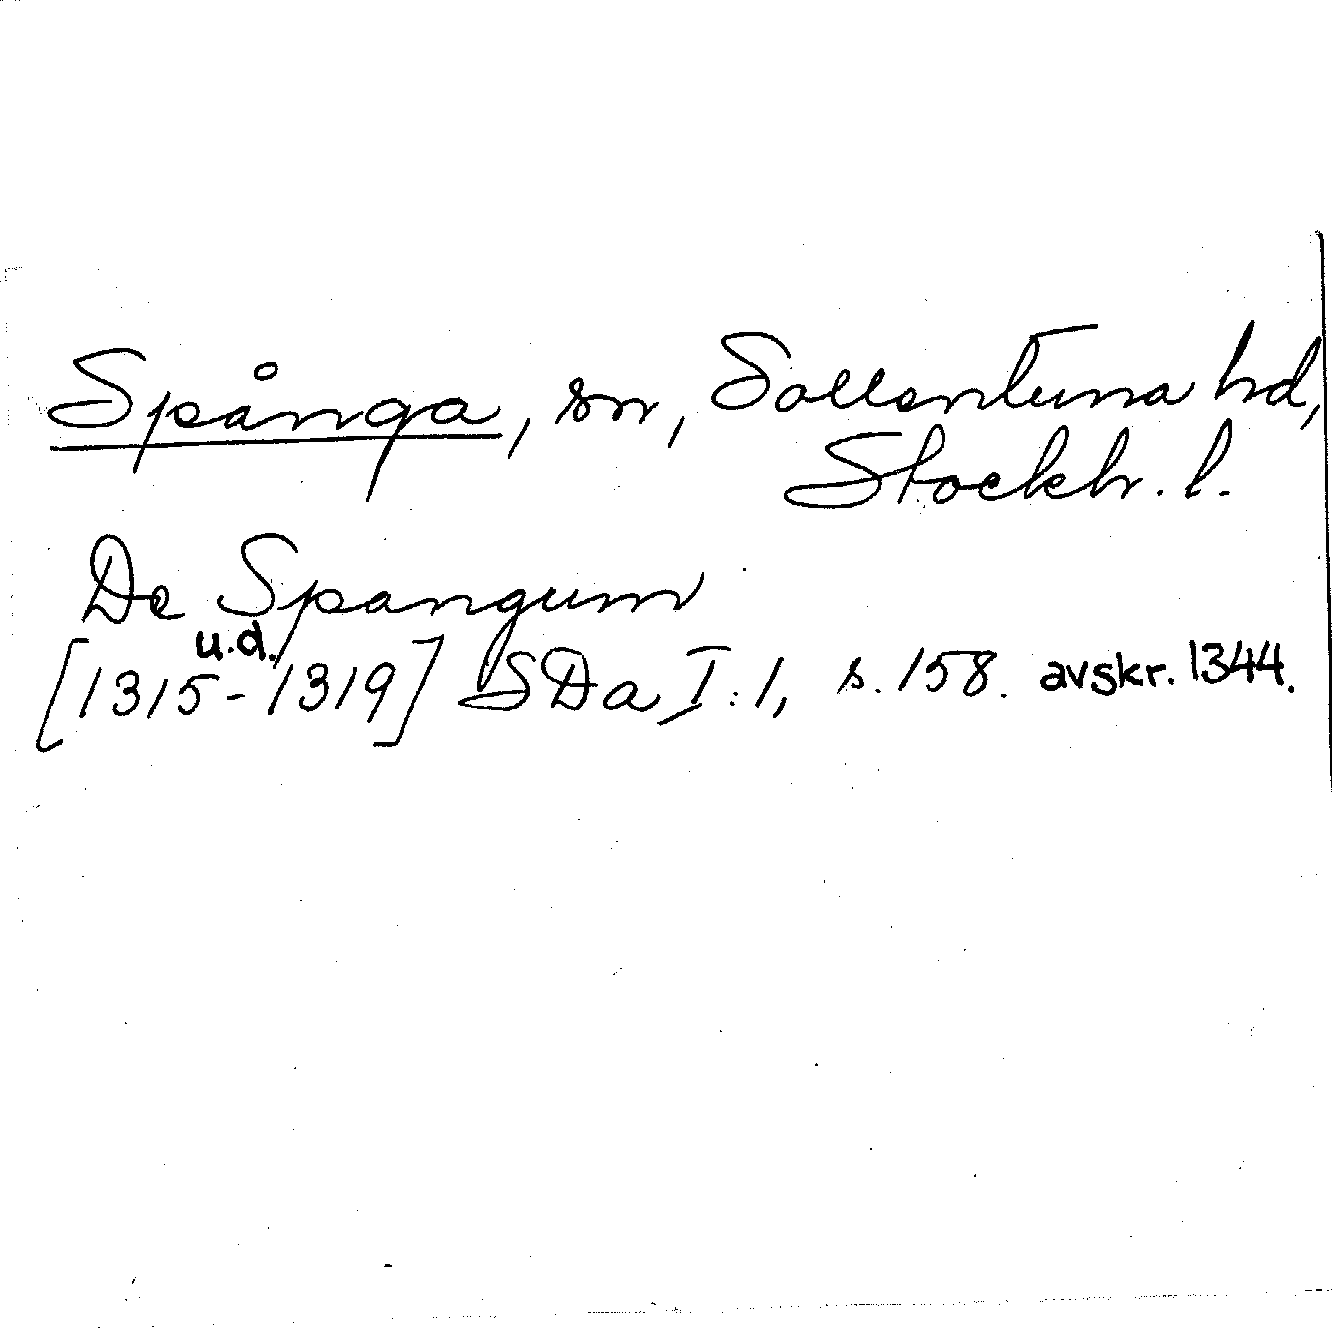 Spånga, sn, Sollentuna hd,
Stockh. l.
De Spangum
u.d.
[1315-1319] SDa I:1, s. 158. avskr. 1344.